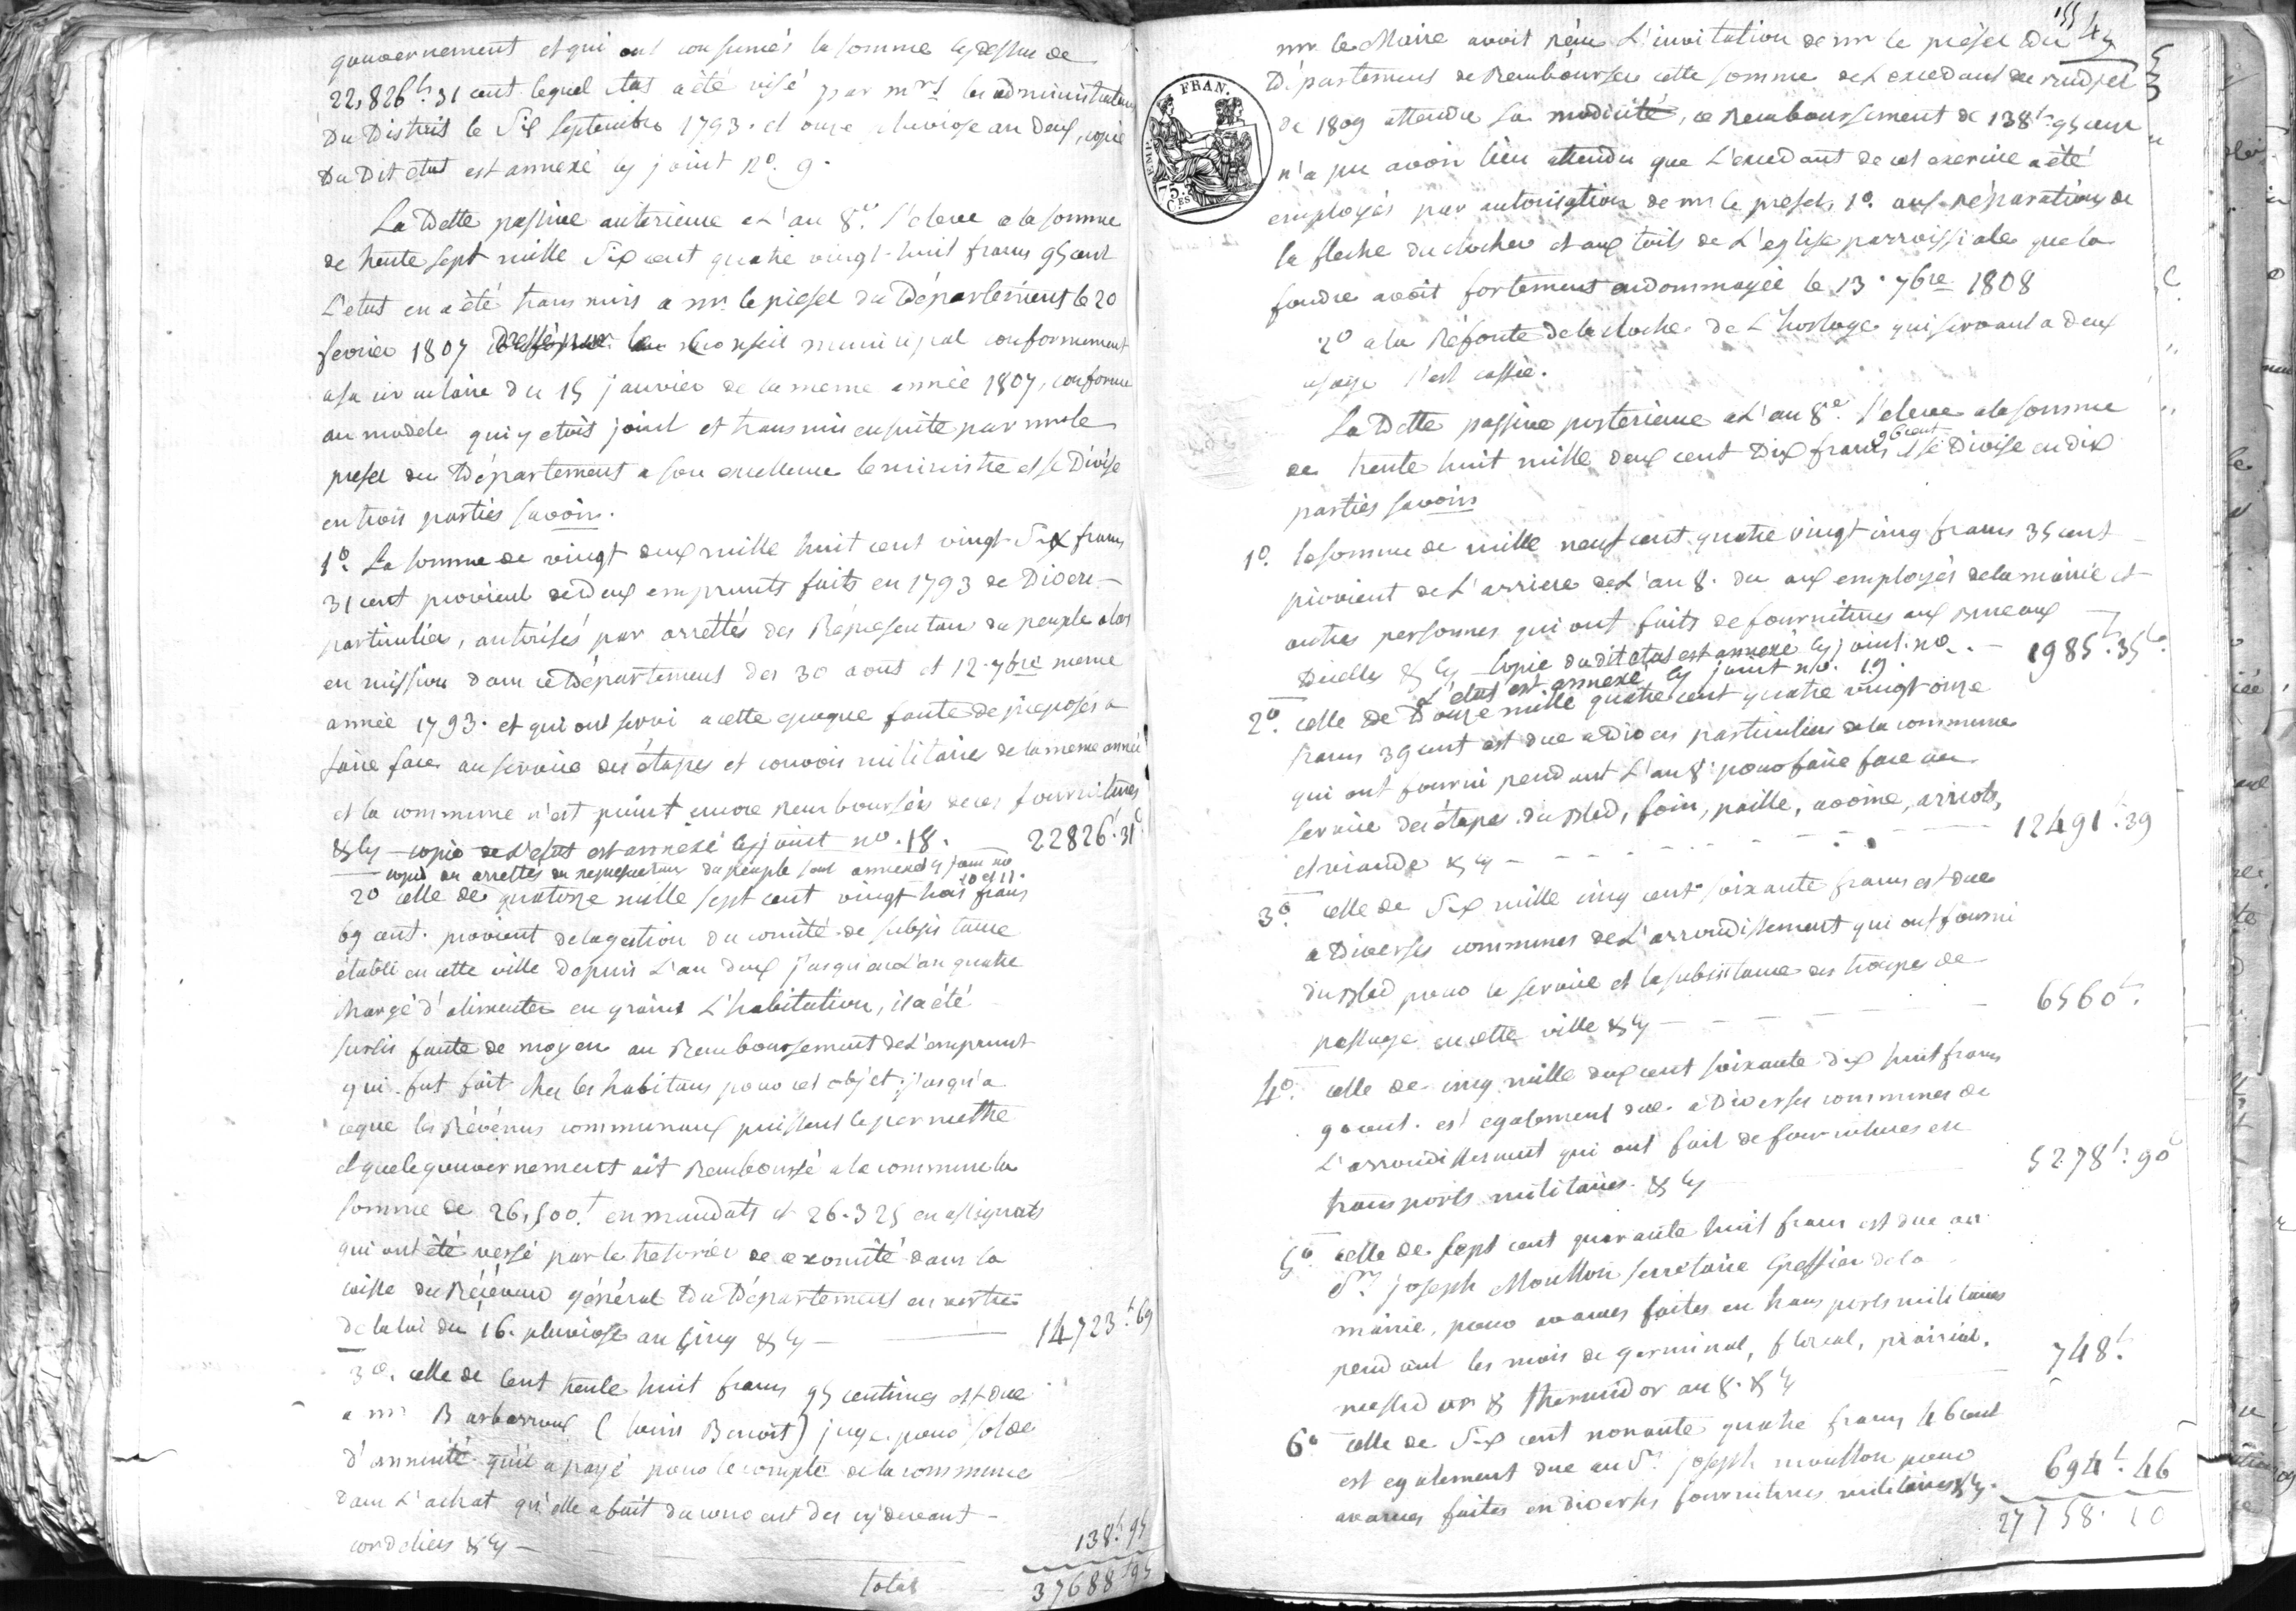 gouvernement et qui ont consumés la somme cy dessus de
22,826 lt. 31 cent. lequel etat a été visé par mrs les administrateurs
Du District le Six Septembre 1793. et onze pluviose an Deux, copie
Du Dit etat est annexé cy joint no. 9.
La Dette passive anterieure a l'an 8e. s'eleve a la somme
de trente sept mille Six cent quatre vingt-huit francs 95 cent
L'etat en a été transmis a mr. le prefet du Département le 20
fevrier 1807 le Conseil municipal conformement
a sa circulaire du 15 janvier de la meme année 1807, conforme
au modele qui y etoit joint et transmis ensuite par mr le
prefet du Département a son excellence le ministre et se Divise
en trois parties savoir.
1o. La somme de vingt deux mille huit cent vingt Six francs
31 cent provient de Deux emprunts faits en 1793 de Divers
particuliers, autorisés par arrettés des Représentans du peuple alors
en mission dans ce Département des 30 aout et 12. 7bre meme
année 1793. et qui ont servi a cette epoque faute de préposés a
faire face au service des étapes et convois militaires de la meme année
et la commune n'est point encore Remboursées de ces fournitures
&cy - copie de L'etat est annexé cy joint no. 18. 22826 lt. 31 c
copie des arrettés des representans du peuple sont annexés cy joint no
10 et 11.
2o celle de quatorze mille sept cent vingt trois francs
69 cent. provient de la gestion du comité de subsistance
établi en cette ville depuis L'an deux jusqu'en L'an quatre
chargé d'alimenter en grains L'habitation, il a été
sursis faute de moyen au Remboursement de L'emprunt
qui fut fait chez les habitans pour cet objet jusqu'a
ceque les Révénus communaux puissent le permettre
et que le gouvernement ait Remboursé a la commune la
somme de 26,500 lt. en mandats et 26.325 en assignats
qui ont été versé par le tresorier de ce comité dans la
caisse du Réceveur général Du Département en vertu
de la loi du 16. pluviose an Cinq &cy — 14723 lt 69
3o. celle de Cent trente huit francs 95 centimes est due
a mr Barbarroux (Louis Benoit) juge pour solde
d'annuité qu'il a payé pour le compte de la commune
dans L'achat qu'elle a fait du couvent des cy devant -
cordeliers &cy - 138 lt 95
total 37688 lt 95
155 45
mr le Maire avoit réçu L'invitation de mr le prefet Du
Département de Rembourser cette somme de L'excedant du budjet
de 1809 attendu sa modicité, ce Remboursement de 138 lt. 95 cent
n'a pu avoir lieu attendu que L'excedant de cet exercice a été
employés par autorisation de mr le prefet, 1o. aux réparations de
la fleche du clocher et aux toits de L'eglise parroissiale que la
foudre avoit fortement endommagée le 13. 7bre 1808
2o a la Réfonte de la cloche de L'horloge qui servant a deux
usage s'est cassée.
FRAN.
EMP.
75.
CES
La Dette passive posterieure a L'an 8e. s'eleve a la somme
96 cent
de trente huit mille deux cent Dix francs et se Divise en dix
parties savoir
1o. la somme de mille neuf cent quatre vingt cinq francs 35 cent
provient de L'arriere de L'an 8. du aux employés de la mairie et
autres personnes qui ont faits de fournitures aux Bureaux
Dicelle &cy copie du dit etat est annexé cy joint. no. - 1985 lt. 35 c.
L'etat est annexé cy joint no. 19.
2o. celle de Douze mille quatre cent quatre vingt onze
francs 39 cent est due a Divers particuliers de la commune
qui ont fourni pendant L'an 8. pour faire face au
service des étapes. du Bled, foin, paille, avoine, arricots,
et viande &cy - 12491 lt. 39
3o. celle de Six mille cinq cent soixante francs est due
a Diverses communes de L'arrondissement qui ont fourni
du Bled pour le service et la subsistance des troupes de
passage en cette ville &cy - 6560 lt.
4o. celle de cinq mille deux cent soixante dix huit francs
90 cent. est egalement due a Diverses communes de
L'arrondissement qui ont fait de fournitures en
transports militaires. &cy 5278 lt. 90 c
5o celle de Sept cent quarante huit francs est due au
Sr. joseph Moutton secretaire Greffier de la
mairie, pour avances faites en transports militaires
pendant les mois de germinal, floreal, prairial,
messidor & thermidor an 8. &cy 748 lt.
6o celle de Six cent nonante quatre francs 46 cent
est egalement due au Sr. joseph moutton pour
avances faites en diverses fournitures militaires &cy. 694 lt. 46
27758. 10